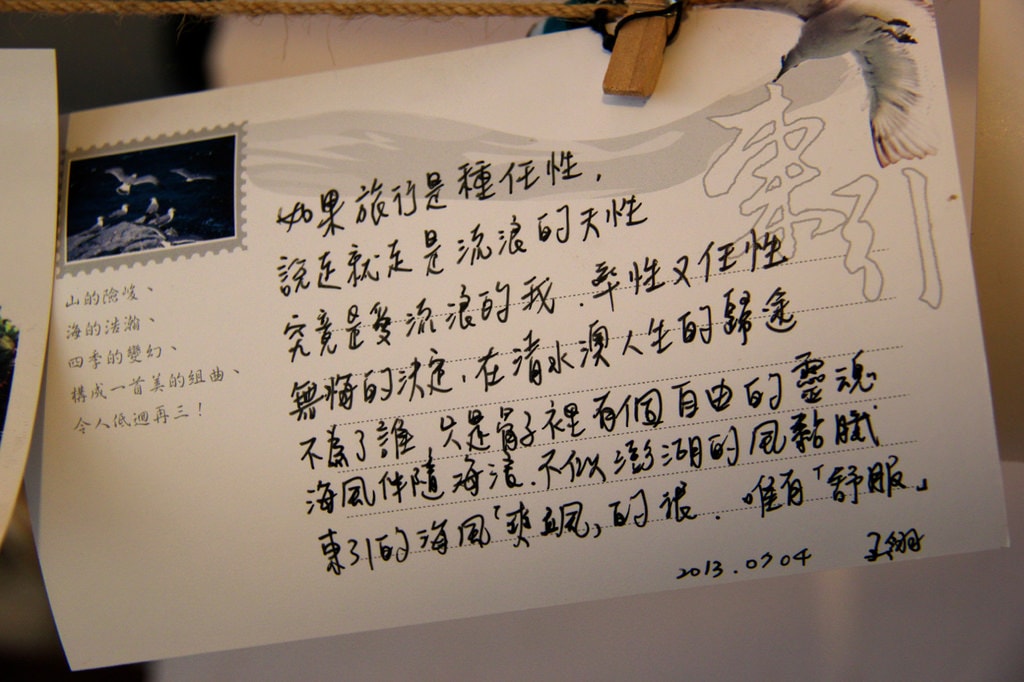 東引
山的險峻、
海的浩瀚、
四季的變幻、
構成一首美的組曲、
令人低迴再三!
如果旅行是種任性,
說走就走是流浪的天性
究竟是愛流浪的我.率性又任性
無悔的決定,在清水澳人生的歸途
不為了誰,只是骨子裡有個自由的靈魂
海風伴隨海浪.不似澎湖的風黏膩
東引的海風「爽颯」的很.唯有「舒服」
2013.07.04